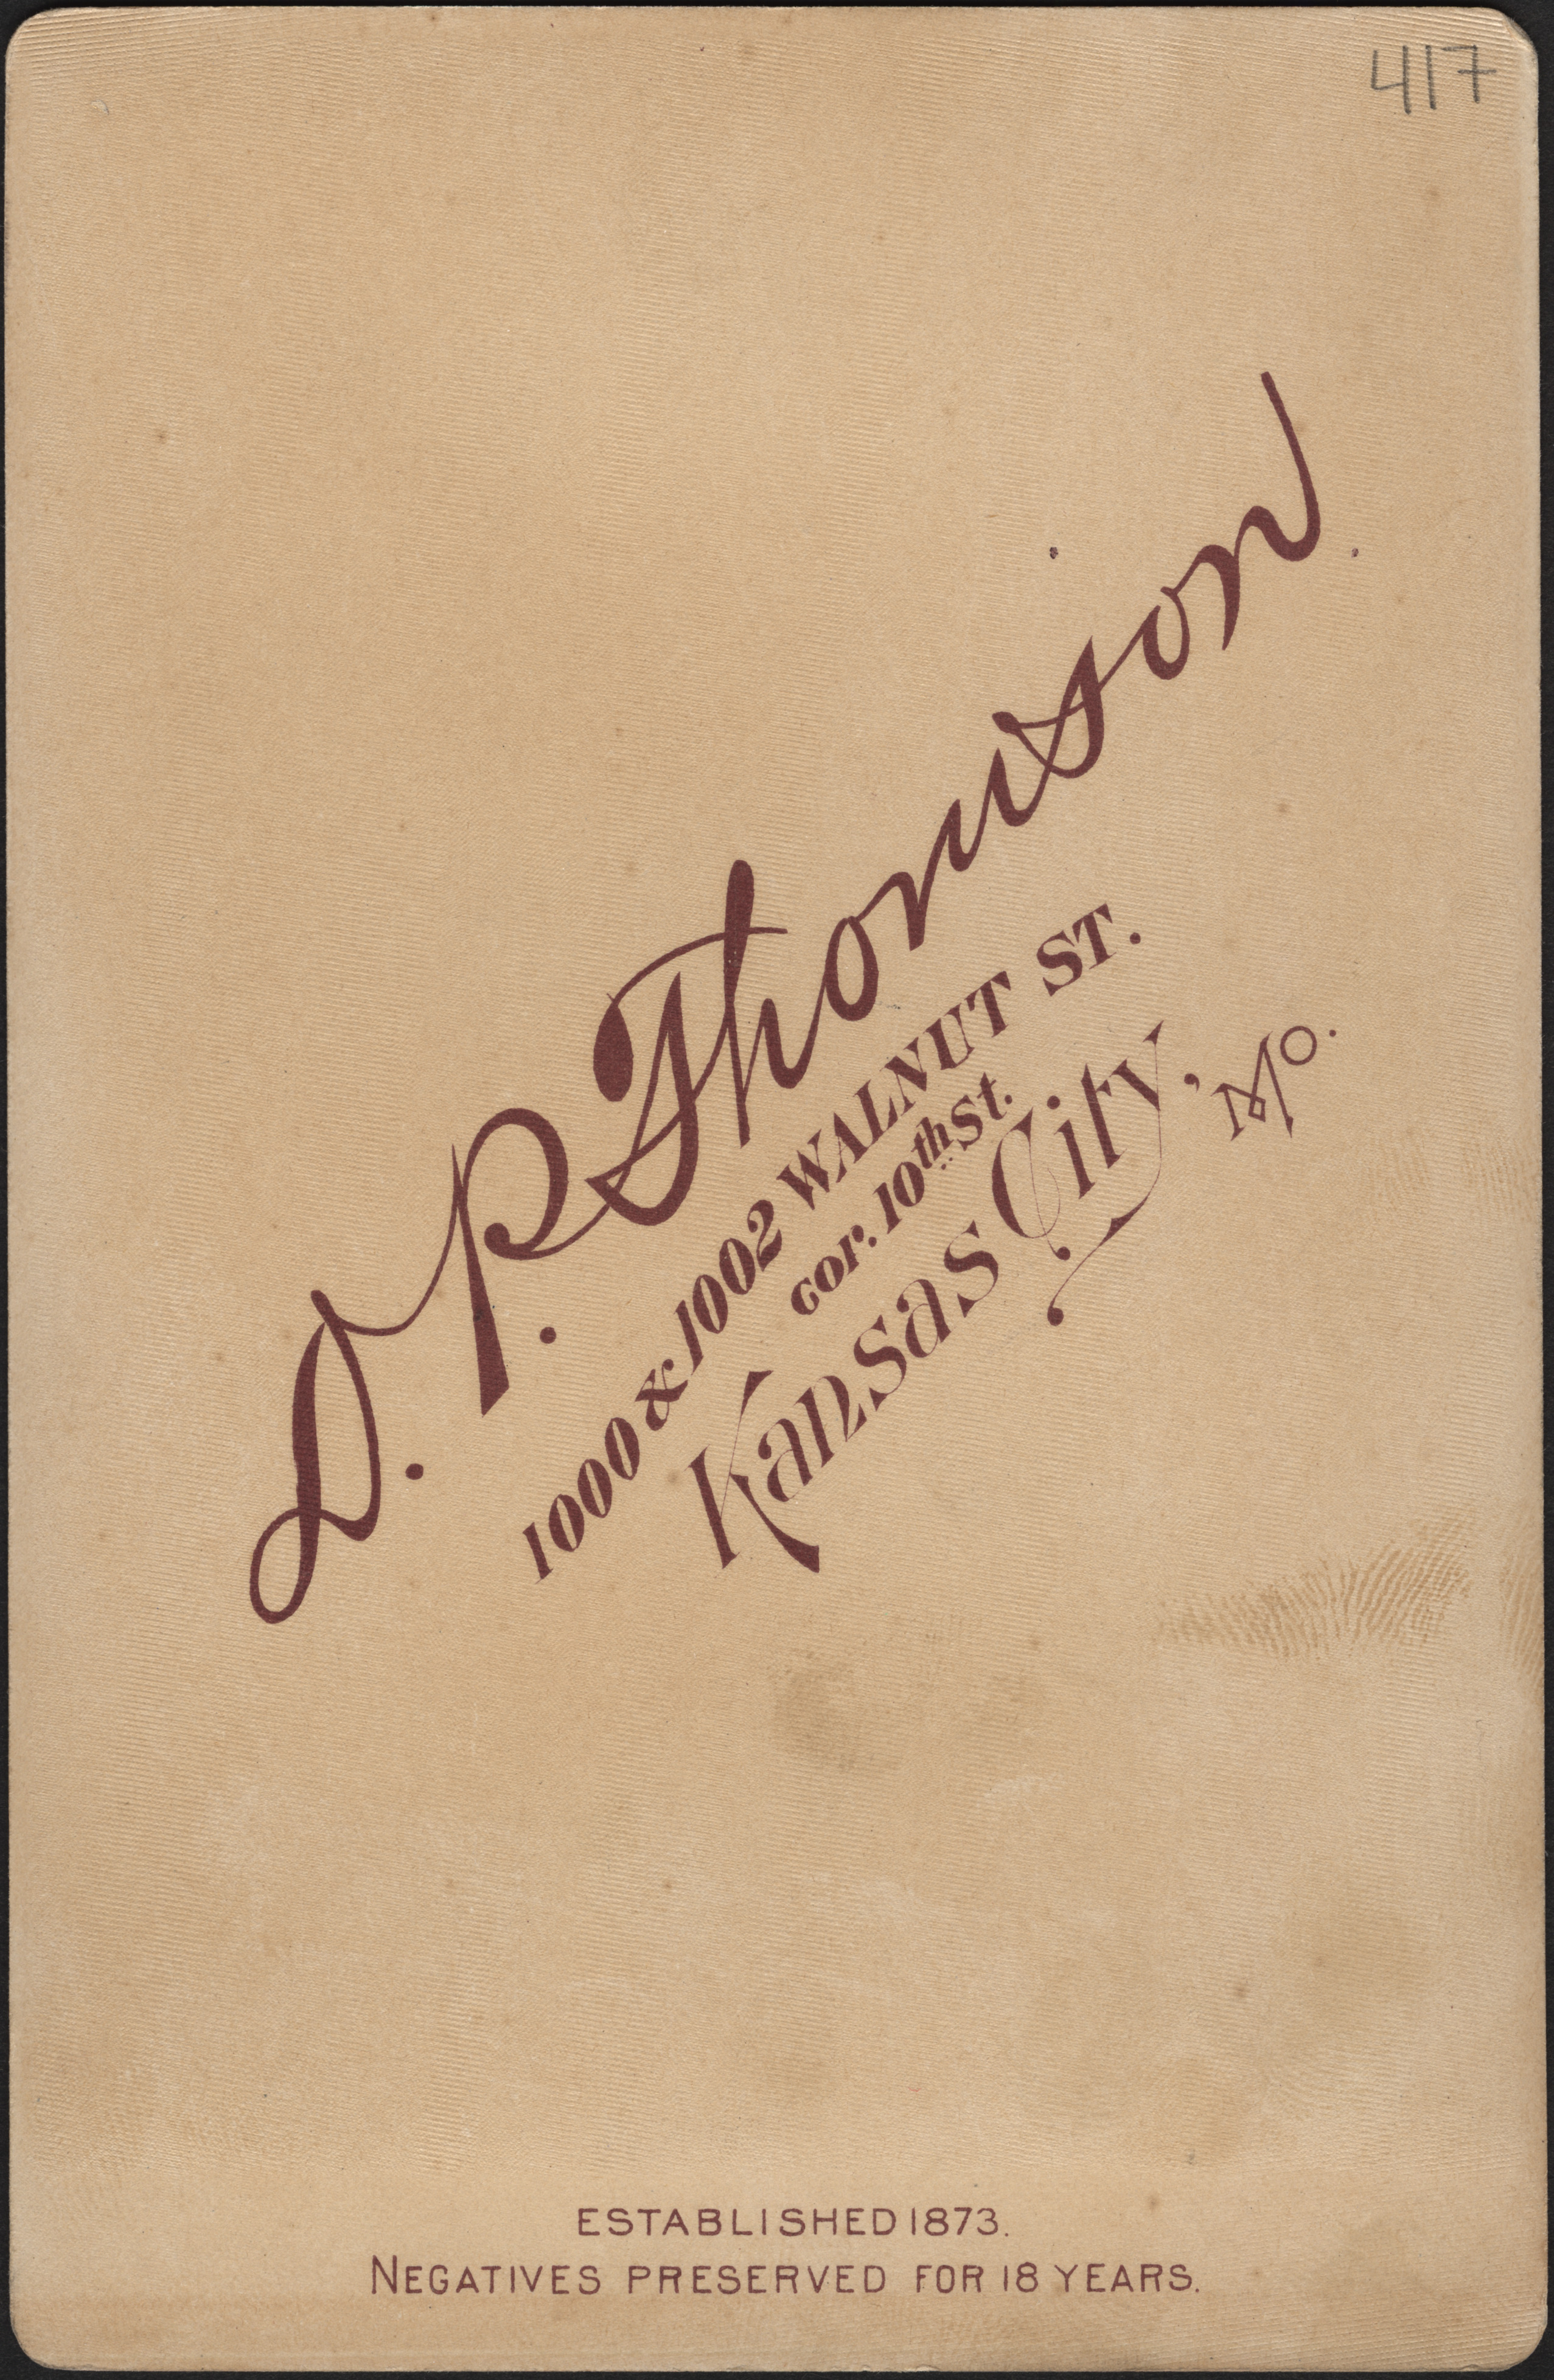 417
D. P. Thomson.
1000 & 1002 WALNUT ST.
cor. 10th St.
Kansas City, Mo.
ESTABLISHED 1873.
NEGATIVES PRESERVED FOR 18 YEARS.